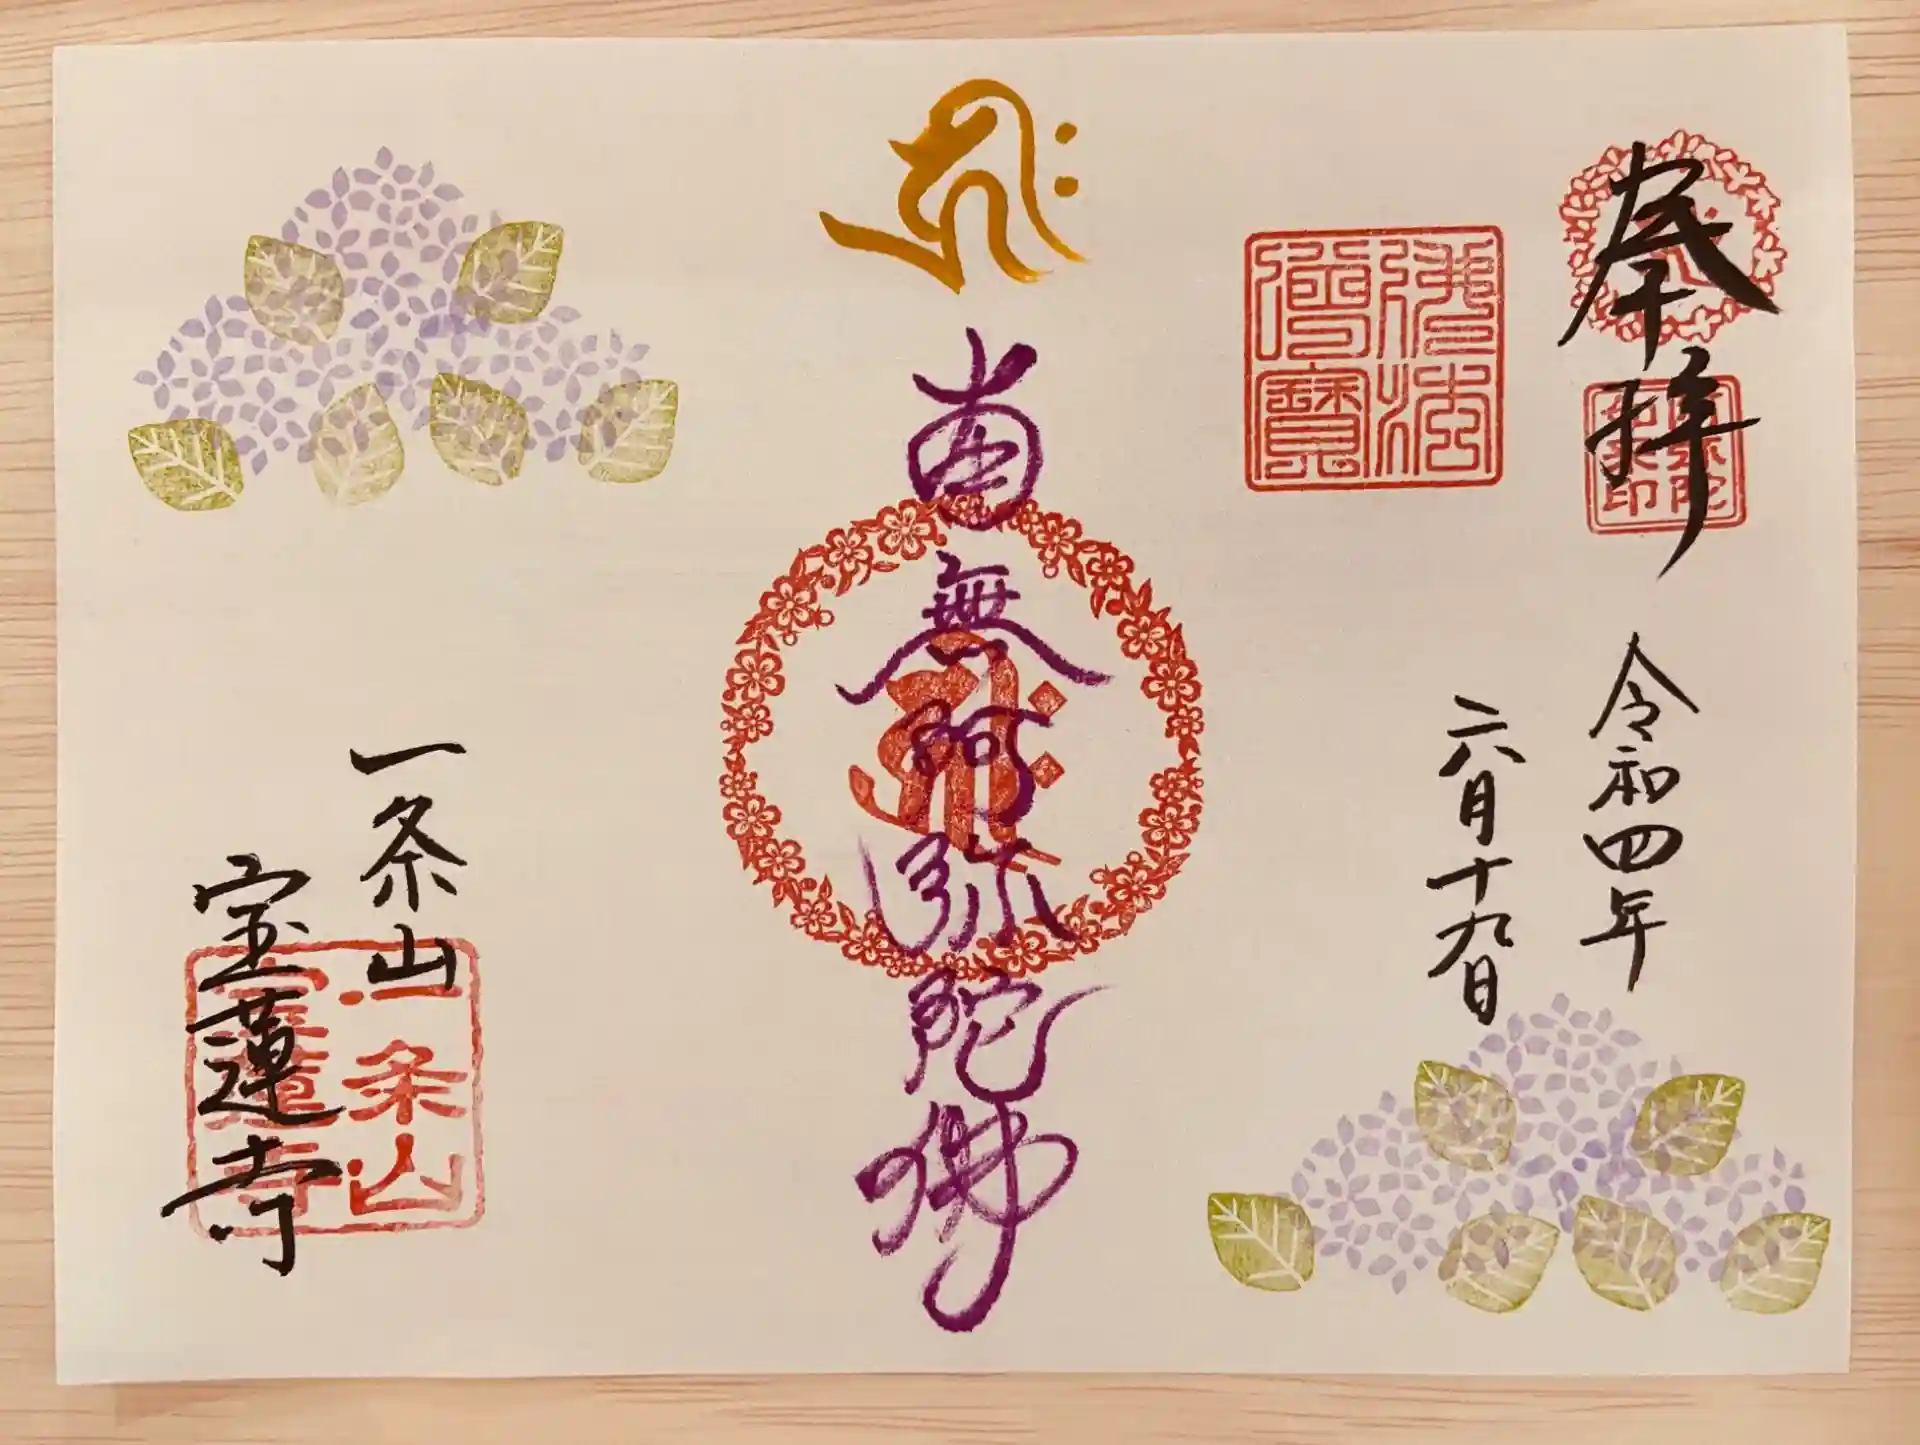 奉拝
令和四年
六月十九日
佛法
僧寳
𑖮𑖿𑖨𑖱𑖾
南無阿弥陀佛
𑖮𑖿𑖨𑖱𑖾
一条山
宝蓮寺
一条山
宝蓮寺